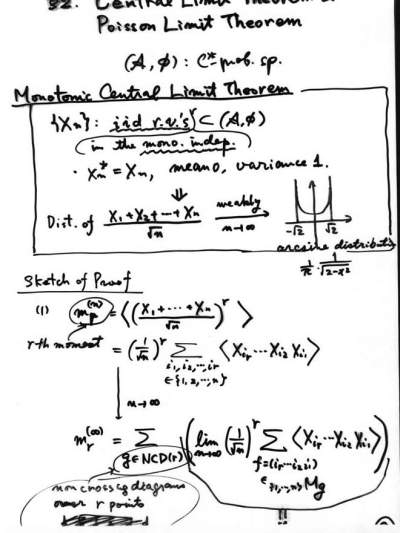 §2. Central Limit Theorem &
Poisson Limit Theorem
(A, φ) : C* prob. sp.
Monotonic Central Limit Theorem
{Xn} : iid r.v.'s ⊂ (A, φ)
(in the mono. indep.)
· Xn* = Xn, mean 0, variance 1.
⇓
Dist. of (X1+X2+…+Xn)/√n weakly → n→∞
-√2 √2
arcsine distribution
1/π · 1/√(2-x²)
Sketch of Proof
(1) mr(n) = ⟨((X1+…+Xn)/√n)^r⟩
r-th moment = (1/√n)^r Σ i1,i2,…,ir ∈{1,2,…,n} ⟨Xir…Xi2 Xi1⟩
↓ n→∞
mr(∞) = Σ g∈NCD(r) (lim n→∞ (1/√n)^r Σ f=(ir…i2i1) ∈{1,…,n} Mg ⟨Xir…Xi2 Xi1⟩)
non crossing diagrams
over r points